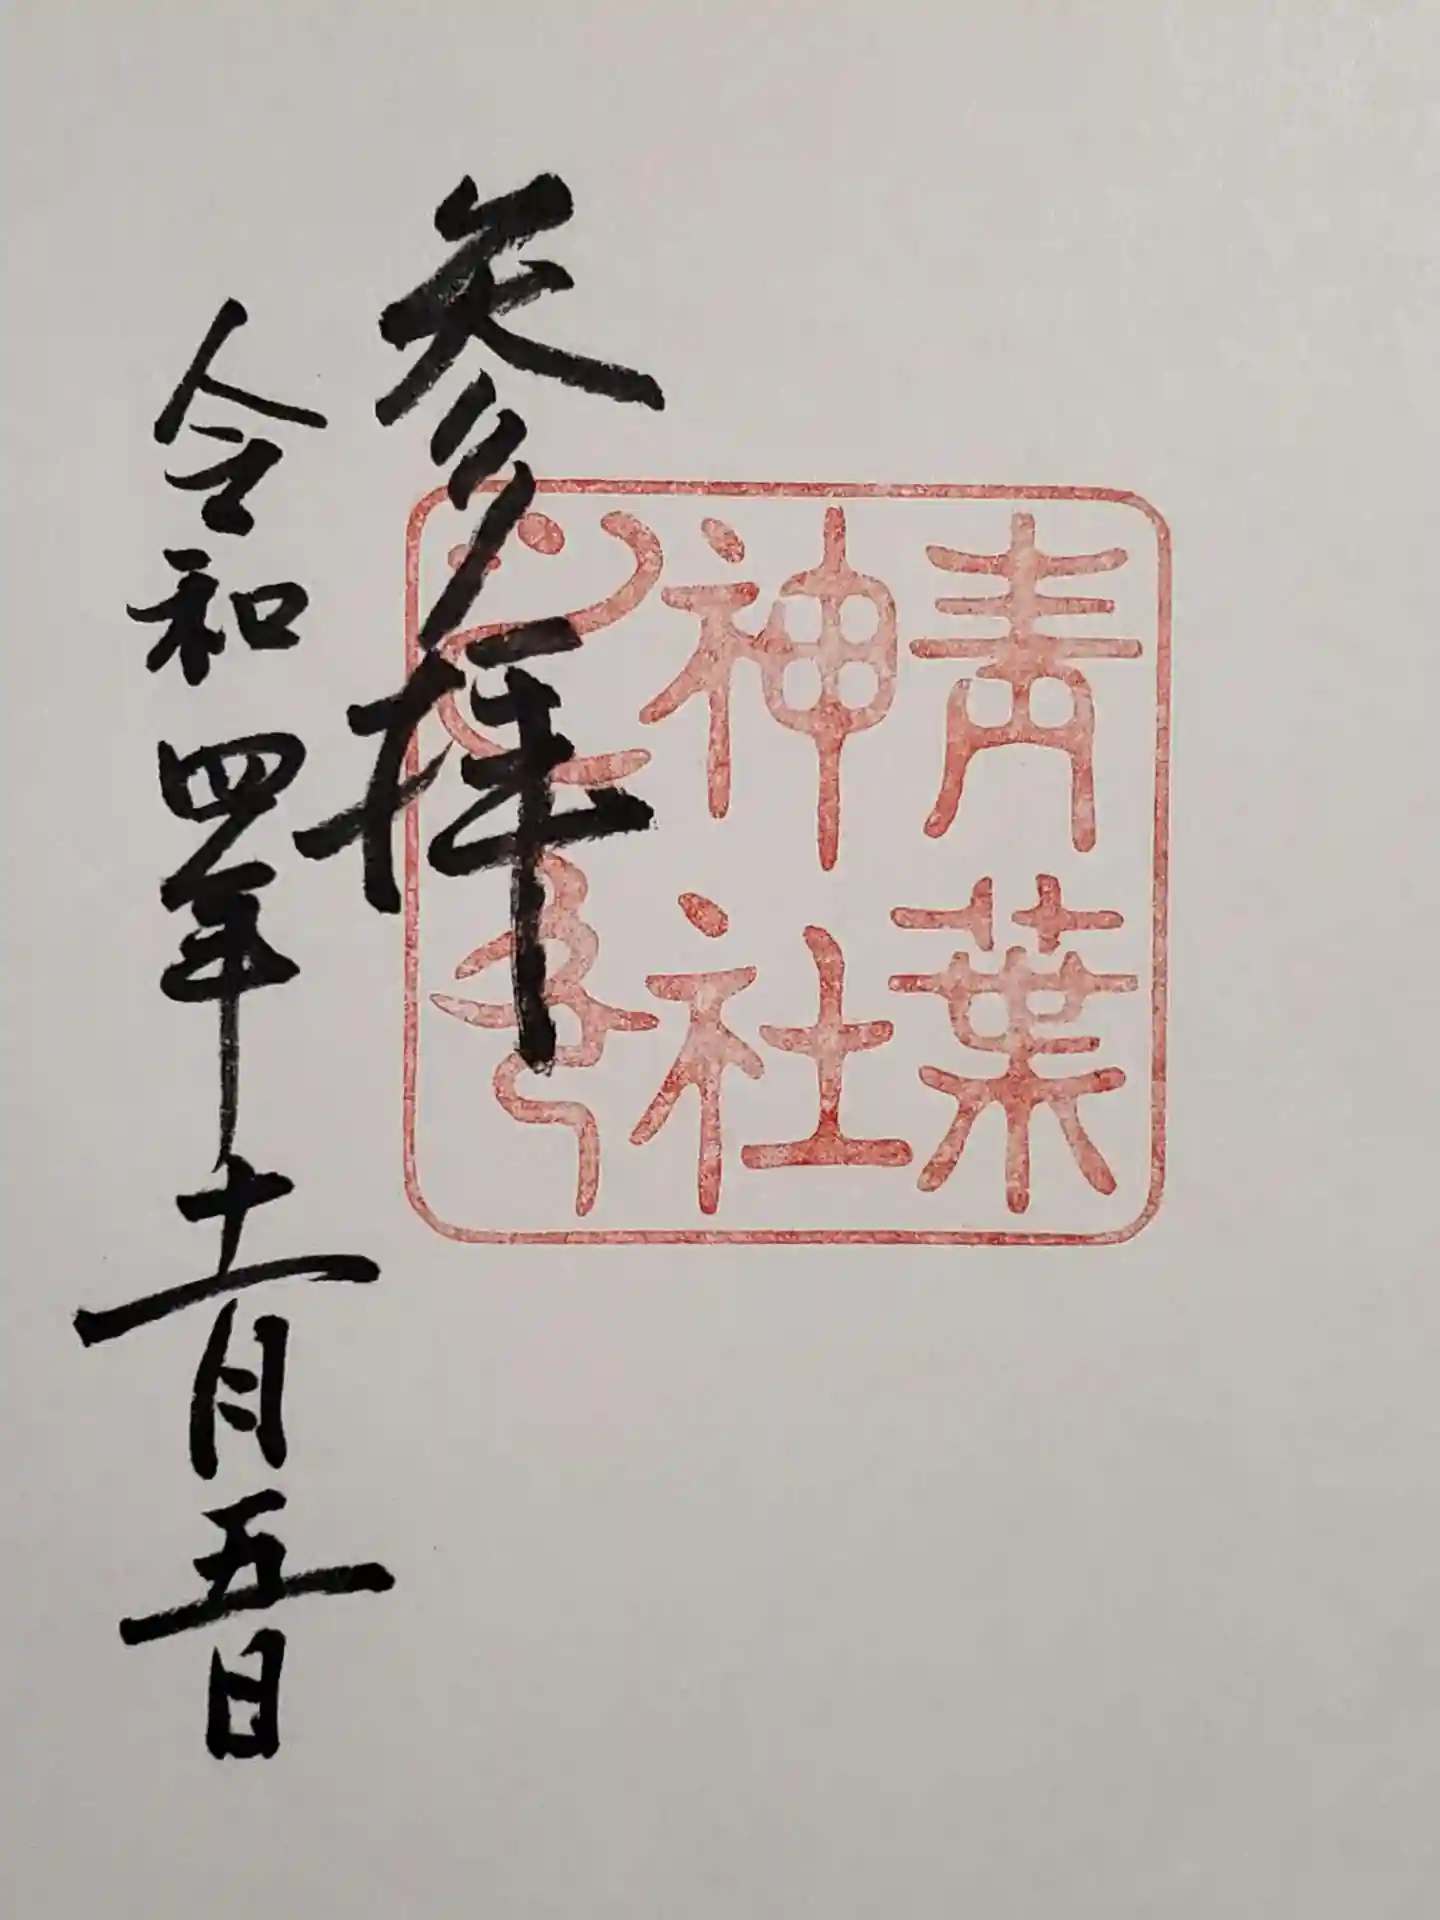 青葉
神社
之印
参拝
令和四年十一月五日